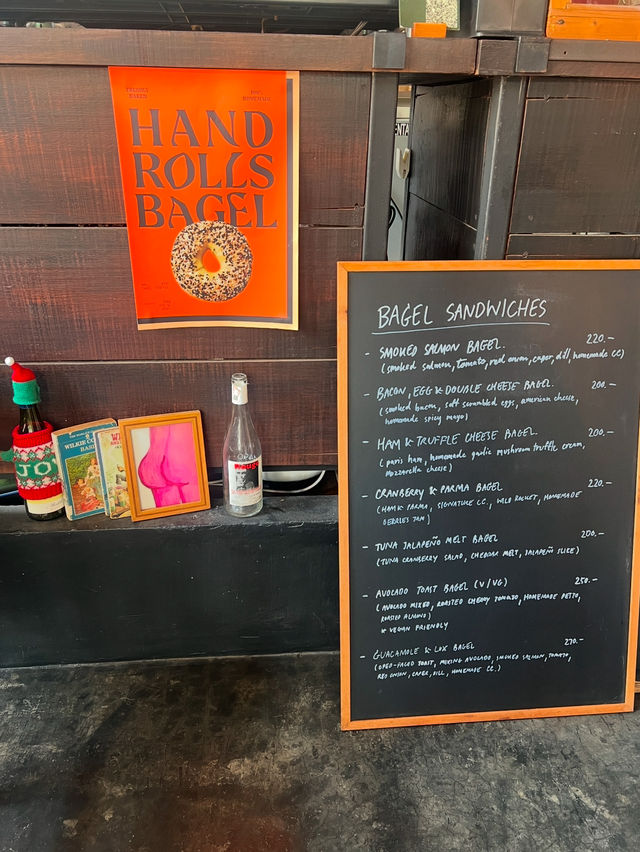 HAND
ROLLS
BAGEL
JOY
BAGEL SANDWICHES
- SMOKED SALMON BAGEL. 220.-
(smoked salmon, tomato, red onion, caper, dill, homemade cc)
- BACON, EGG & DOUBLE CHEESE BAGEL. 200.-
(smoked bacon, soft scrambled eggs, american cheese,
homemade spicy mayo)
- HAM & TRUFFLE CHEESE BAGEL. 200.-
(paris ham, homemade garlic mushroom truffle cream,
mozzarella cheese)
- CRANBERRY & PARMA BAGEL 220.-
(HAM & PARMA, SIGNATURE CC., WILD ROCKET, HOMEMADE
BERRIES JAM)
- TUNA JALAPEÑO MELT BAGEL 200.-
(TUNA CRANBERRY SALAD, CHEDDAR MELT, JALAPEÑO SLICE)
- AVOCADO TOAST BAGEL (V/VG) 250.-
(AVOCADO MIXED, ROASTED CHERRY TOMATO, HOMEMADE PESTO,
ROASTED ALMOND)
& VEGAN FRIENDLY
- GUACAMOLE & LOX BAGEL 270.-
(OPED-FACED TOAST, MIXING AVOCADO, SMOKED SALMON, TOMATO,
RED ONION, CAPER, DILL, HOMEMADE CC.)